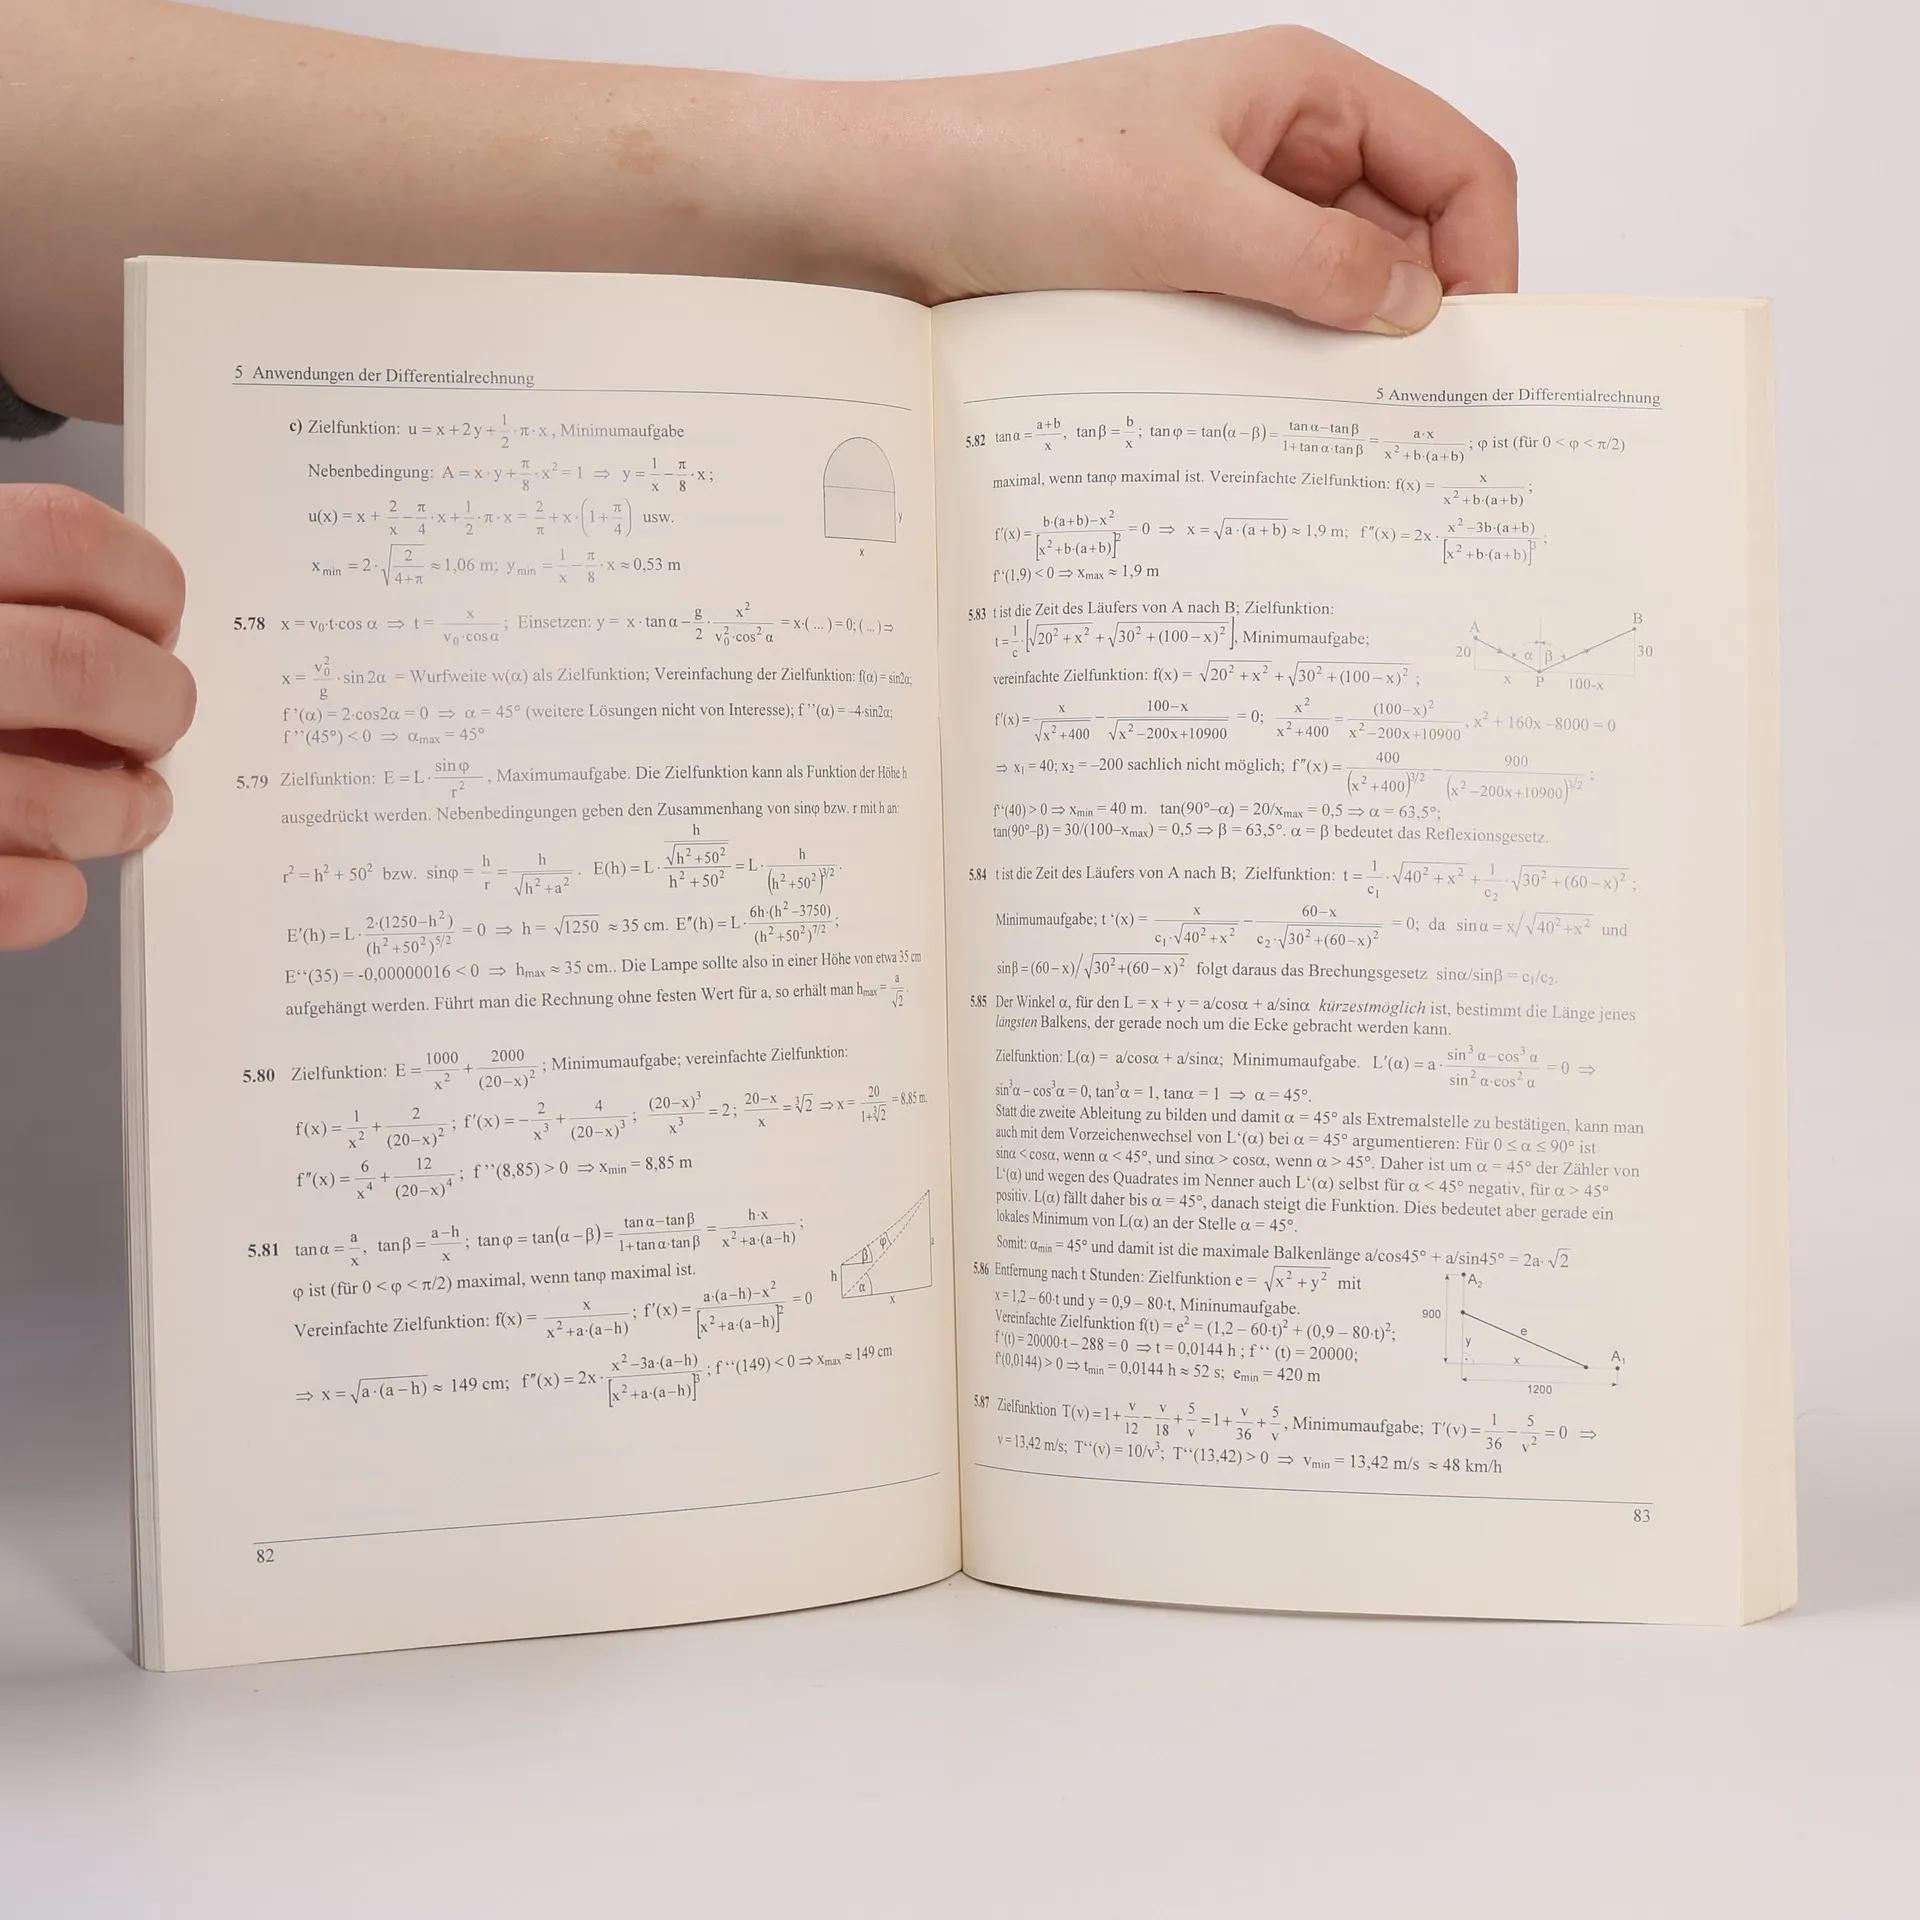 5 Anwendungen der Differentialrechnung
c) Zielfunktion: u = x + 2y + 1/2 · π · x , Minimumaufgabe
Nebenbedingung: A = x · y + π/8 · x² = 1 ⇒ y = 1/x − π/8 · x ;
u(x) = x + 2/x − π/4 · x + 1/2 · π · x = 2/π + x · (1 + π/4) usw.
x_min = 2 · √(2/(4+π)) ≈ 1,06 m; y_min = 1/x − π/8 · x ≈ 0,53 m
y
x
5.78 x = v₀·t·cos α ⇒ t = x/(v₀·cos α) ; Einsetzen: y = x · tan α − g/2 · x²/(v₀²·cos² α) = x·( ... ) = 0; ( ... ) ⇒
x = v₀²/g · sin 2α = Wurfweite w(α) als Zielfunktion; Vereinfachung der Zielfunktion: f(α) = sin2α;
f ’(α) = 2·cos2α = 0 ⇒ α = 45° (weitere Lösungen nicht von Interesse); f ’’(α) = -4·sin2α;
f ’’(45°) < 0 ⇒ α_max = 45°
5.79 Zielfunktion: E = L · sin φ/r² , Maximumaufgabe. Die Zielfunktion kann als Funktion der Höhe h
ausgedrückt werden. Nebenbedingungen geben den Zusammenhang von sinφ bzw. r mit h an:
r² = h² + 50² bzw. sinφ = h/r = h/√(h²+a²) . E(h) = L · (h/√(h²+50²))/(h²+50²) = L · h/(h²+50²)^(3/2) .
E′(h) = L · 2·(1250−h²)/(h²+50²)^(5/2) = 0 ⇒ h = √1250 ≈ 35 cm. E″(h) = L · 6h·(h²−3750)/(h²+50²)^(7/2) ;
E‘‘(35) = -0,00000016 < 0 ⇒ h_max ≈ 35 cm.. Die Lampe sollte also in einer Höhe von etwa 35 cm
aufgehängt werden. Führt man die Rechnung ohne festen Wert für a, so erhält man h_max = a/√2 .
5.80 Zielfunktion: E = 1000/x² + 2000/(20−x)² ; Minimumaufgabe; vereinfachte Zielfunktion:
f(x) = 1/x² + 2/(20−x)² ; f′(x) = −2/x³ + 4/(20−x)³ ; (20−x)³/x³ = 2 ; (20−x)/x = ∛2 ⇒ x = 20/(1+∛2) = 8,85 m;
f″(x) = 6/x⁴ + 12/(20−x)⁴ ; f ’’(8,85) > 0 ⇒ x_min = 8,85 m
5.81 tan α = a/x , tan β = (a−h)/x ; tan φ = tan(α−β) = (tan α − tan β)/(1+tan α·tan β) = h·x/(x²+a·(a−h)) ;
φ ist (für 0 < φ < π/2) maximal, wenn tanφ maximal ist.
Vereinfachte Zielfunktion: f(x) = x/(x²+a·(a−h)) ; f′(x) = (a·(a−h)−x²)/[x²+a·(a−h)]² = 0
⇒ x = √(a·(a−h)) ≈ 149 cm; f″(x) = 2x · (x²−3a·(a−h))/[x²+a·(a−h)]³ ; f ‘‘(149) < 0 ⇒ x_max ≈ 149 cm
h
β
φ
α
x
82
5 Anwendungen der Differentialrechnung
5.82 tan α = (a+b)/x , tan β = b/x ; tan φ = tan(α−β) = (tan α−tan β)/(1+tan α·tan β) = a·x/(x²+b·(a+b)) ; φ ist (für 0 < φ < π/2)
maximal, wenn tanφ maximal ist. Vereinfachte Zielfunktion: f(x) = x/(x²+b·(a+b)) ;
f′(x) = (b·(a+b)−x²)/[x²+b·(a+b)]² = 0 ⇒ x = √(a·(a+b)) ≈ 1,9 m; f″(x) = 2x · (x²−3b·(a+b))/[x²+b·(a+b)]³ ;
f‘‘(1,9) < 0 ⇒ x_max ≈ 1,9 m
5.83 t ist die Zeit des Läufers von A nach B; Zielfunktion:
t = 1/c · [√(20²+x²) + √(30²+(100−x)²)], Minimumaufgabe;
vereinfachte Zielfunktion: f(x) = √(20²+x²) + √(30²+(100−x)²) ;
A
B
20
α
β
30
x
P
100-x
f′(x) = x/√(x²+400) − (100−x)/√(x²−200x+10900) = 0; x²/(x²+400) = (100−x)²/(x²−200x+10900) , x² + 160x − 8000 = 0
⇒ x₁ = 40; x₂ = −200 sachlich nicht möglich; f″(x) = 400/(x²+400)^(3/2) − 900/(x²−200x+10900)^(3/2) ;
f‘‘(40) > 0 ⇒ x_min = 40 m. tan(90°−α) = 20/x_max = 0,5 ⇒ α = 63,5°;
tan(90°−β) = 30/(100−x_max) = 0,5 ⇒ β = 63,5°. α = β bedeutet das Reflexionsgesetz.
5.84 t ist die Zeit des Läufers von A nach B; Zielfunktion: t = 1/c₁ · √(40²+x²) + 1/c₂ · √(30²+(60−x)²) ;
Minimumaufgabe; t ‘(x) = x/(c₁·√(40²+x²)) − (60−x)/(c₂·√(30²+(60−x)²)) = 0; da sin α = x/√(40²+x²) und
sin β = (60−x)/√(30²+(60−x)²) folgt daraus das Brechungsgesetz sinα/sinβ = c₁/c₂.
5.85 Der Winkel α, für den L = x + y = a/cosα + a/sinα kürzestmöglich ist, bestimmt die Länge jenes
längsten Balkens, der gerade noch um die Ecke gebracht werden kann.
Zielfunktion: L(α) = a/cosα + a/sinα; Minimumaufgabe. L′(α) = a · (sin³ α−cos³ α)/(sin² α·cos² α) = 0 ⇒
sin³α − cos³α = 0, tan³α = 1, tanα = 1 ⇒ α = 45°.
Statt die zweite Ableitung zu bilden und damit α = 45° als Extremalstelle zu bestätigen, kann man
auch mit dem Vorzeichenwechsel von L‘(α) bei α = 45° argumentieren: Für 0 ≤ α ≤ 90° ist
sinα < cosα, wenn α < 45°, und sinα > cosα, wenn α > 45°. Daher ist um α = 45° der Zähler von
L‘(α) und wegen des Quadrates im Nenner auch L‘(α) selbst für α < 45° negativ, für α > 45°
positiv. L(α) fällt daher bis α = 45°, danach steigt die Funktion. Dies bedeutet aber gerade ein
lokales Minimum von L(α) an der Stelle α = 45°.
Somit: α_min = 45° und damit ist die maximale Balkenlänge a/cos45° + a/sin45° = 2a· √2
5.86 Entfernung nach t Stunden: Zielfunktion e = √(x²+y²) mit
x = 1,2 – 60·t und y = 0,9 – 80·t, Mininumaufgabe.
Vereinfachte Zielfunktion f(t) = e² = (1,2 – 60·t)² + (0,9 – 80·t)²;
f‘(t) = 20000·t – 288 = 0 ⇒ t = 0,0144 h ; f‘‘ (t) = 20000;
f‘(0,0144) > 0 ⇒ t_min = 0,0144 h ≈ 52 s; e_min = 420 m
A₂
900
e
y
x
A₁
1200
5.87 Zielfunktion T(v) = 1 + v/12 − v/18 + 5/v = 1 + v/36 + 5/v , Minimumaufgabe; T′(v) = 1/36 − 5/v² = 0 ⇒
v = 13,42 m/s; T‘‘(v) = 10/v³; T‘‘(13,42) > 0 ⇒ v_min = 13,42 m/s ≈ 48 km/h
83